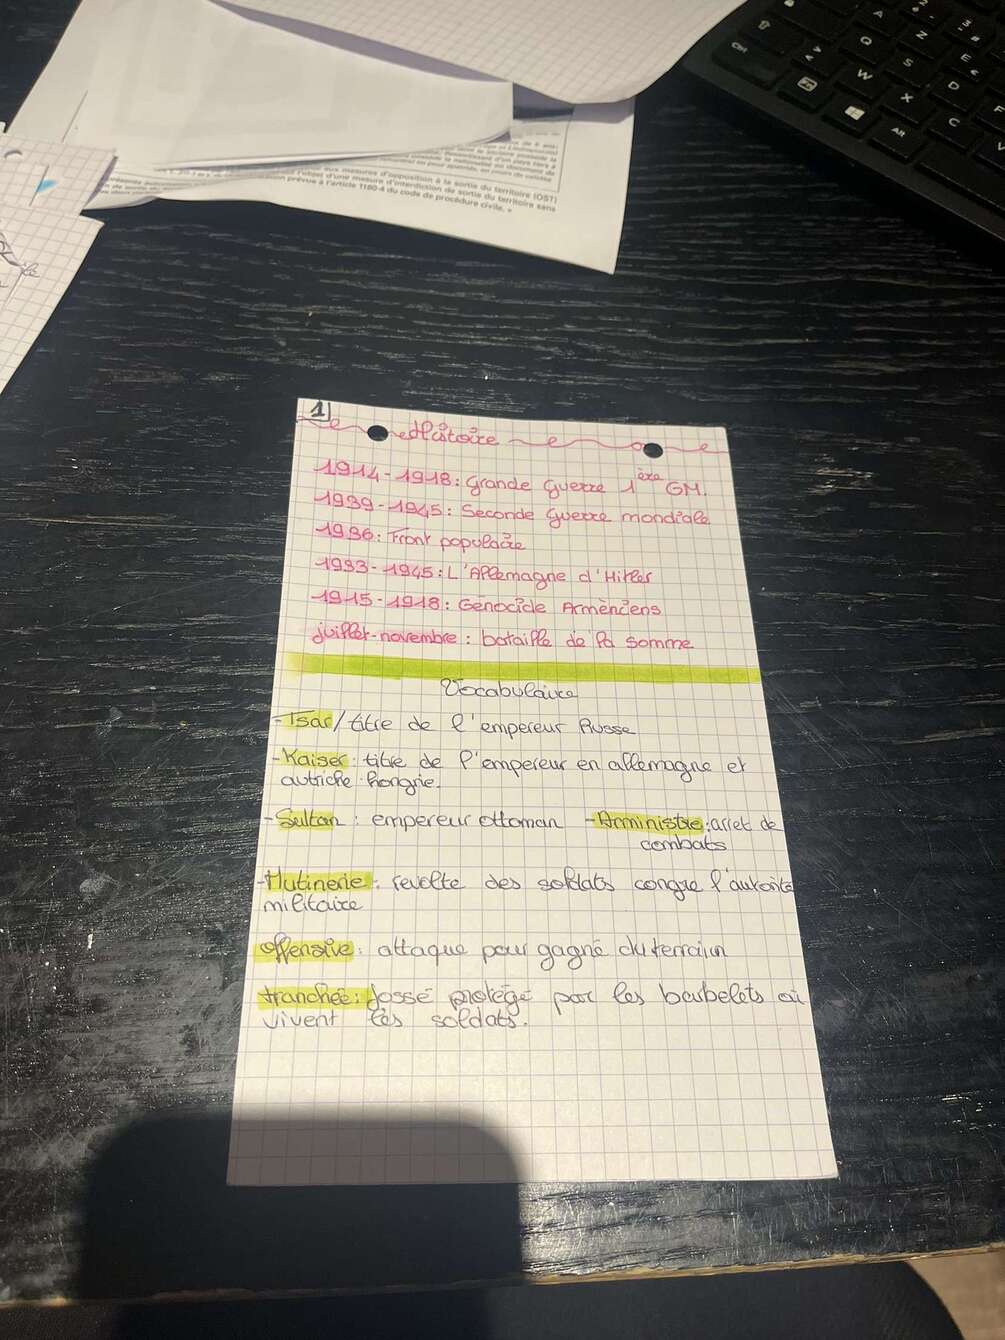 aux mesures d'opposition à la sortie du territoire (OST)
l'objet d'une mesure d'interdiction de sortie du territoire sans
prévue à l'article 1180-4 du code de procédure civile. »
1
Histoire
1914-1918: Grande Guerre 1ère GM.
1939-1945: Seconde Guerre mondiale
1936: Front populaire
1933-1945: L'Allemagne d'Hitler
1915-1918: Génocide Arménciens
juillet-novembre: bataille de la somme
Vocabulaire
-Tsar/titre de l'empereur Russe
-Kaiser: titre de l'empereur en allemagne et
autriche-hongrie.
-Sultan: empereur ottoman -Arministre: arret de
combats
-Mutinerie: révolte des soldats congre l'autorité
militaire
offensive: attaque pour gagné du terraiun
tranchée: fossé protégé par les barbelets où
vivent les soldats.